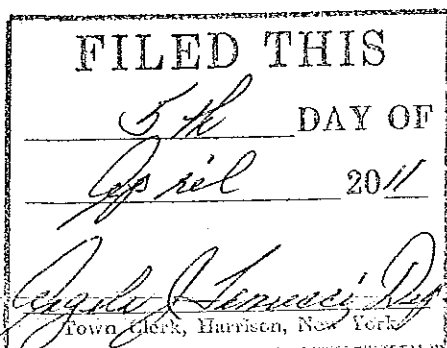 FILED THIS
5th DAY OF
April 2011
Town Clerk, Harrison, New York